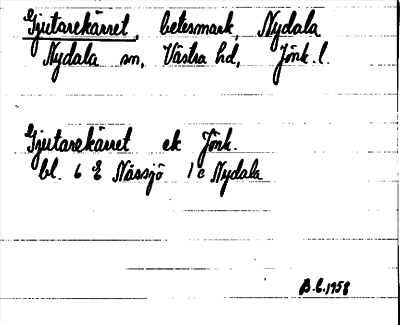 Gjutarekärret, betesmark, Nydala
Nydala sn, Västra hd, Jönk. l.
Gjutarekärret ek Jönk.
bl. 6 E Nässjö 1 c Nydala
B.C. 1958